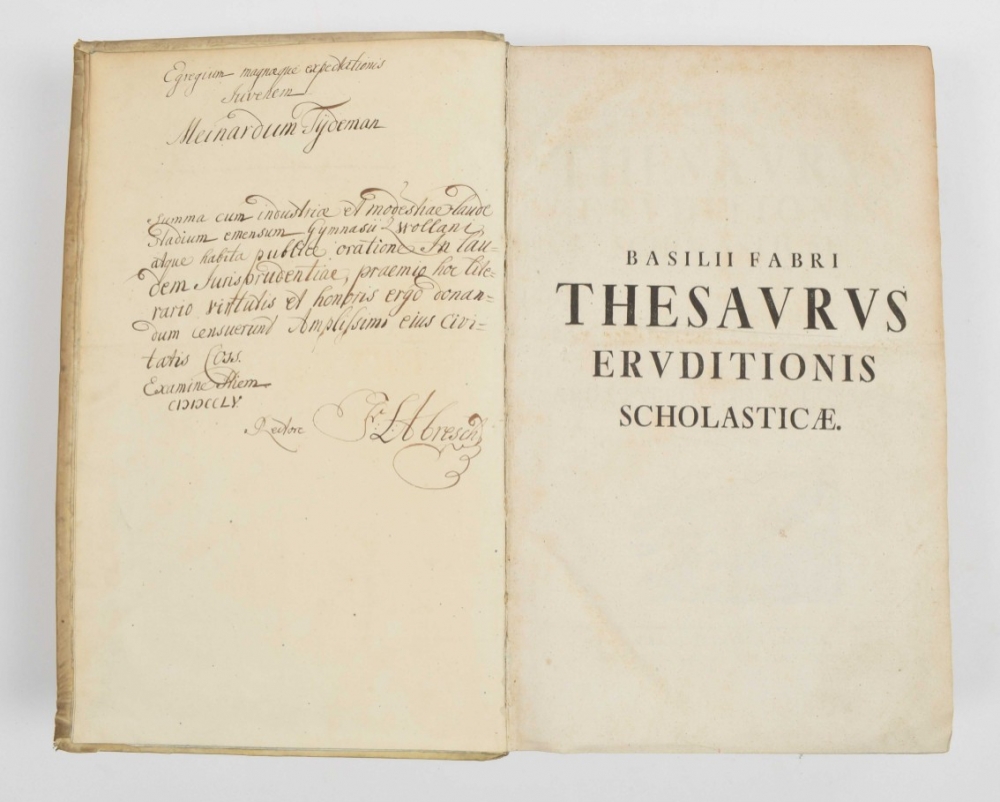 Egregium magnaque expectationis
Juvenem
Meinardum Tijdeman
summa cum industriæ et modestiae laude
stadium emensum Gymnasii Zwollani,
atque habita publice oratione In lau-
dem Jurisprudentiae, praemio hoc lite-
rario virtutis et honoris ergo donan-
dum censuerunt Amplissimi eius civi-
tatis Coss.
Examine
CIƆIƆCCLV.
Rectore Fr. L. Abresch
BASILII FABRI
THESAVRVS
ERVDITIONIS
SCHOLASTICÆ.